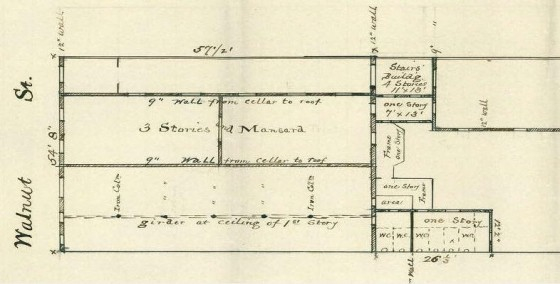 12" wall
57½'
12" wall
9"
"
Walnut St.
54' 8"
Stairs
Buildg
4 Stories
11'x18'
one Story
7'x13'
9" Wall from cellar to roof
3 Stories and Mansard
12" wall
Frame
one Story
9" Wall from Cellar to roof
Iron Colm
"
"
"
Iron Colm
one Story
Frame
area
girder at ceiling of 1st Story
one Story
W.C.
W.C.
W.C.
W.C.
Wall
26½'